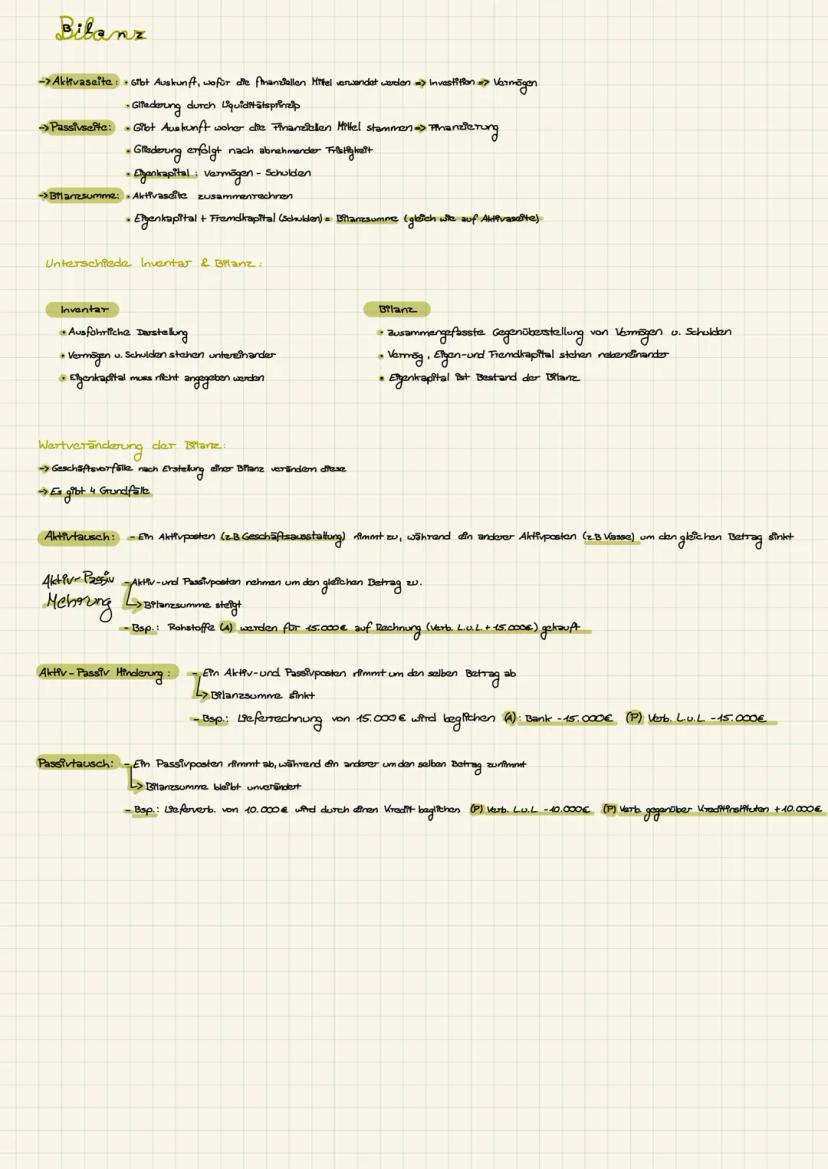 Bilanz
-> Aktivaseite: • Gibt Auskunft, wofür die finanziellen Mittel verwendet werden => Investition => Vermögen
• Gliederung durch Liquiditätsprinzip
-> Passivseite: • Gibt Auskunft woher die Finanziellen Mittel stammen => Finanzierung
• Gliederung erfolgt nach abnehmender Fristigkeit
• Eigenkapital : Vermögen - Schulden
-> Bilanzsumme: • Aktivaseite zusammenrechnen
• Eigenkapital + Fremdkapital (Schulden) = Bilanzsumme (gleich wie auf Aktivaseite)
Unterschiede Inventar & Bilanz :
Inventar
• Ausführliche Darstellung
• Vermögen u. Schulden stehen untereinander
• Eigenkapital muss nicht angegeben werden
Bilanz
• zusammengefasste Gegenüberstellung von Vermögen u. Schulden
• Vermög, Eigen-und Fremdkapital stehen nebeneinander
• Eigenkapital ist Bestand der Bilanz
Wertveränderung der Bilanz:
-> Geschäftsvorfälle nach Erstellung einer Bilanz verändern diese
-> Es gibt 4 Grundfälle
Aktivtausch: - Ein Aktivposten (z.B Geschäftsausstattung) nimmt zu, während ein anderer Aktivposten (z.B Kasse) um den gleichen Betrag sinkt
Aktiv-Passiv - Aktiv-und Passivposten nehmen um den gleichen Betrag zu.
Mehrung -> Bilanzsumme steigt
- Bsp.: Rohstoffe (A) werden für 15.000€ auf Rechnung (Verb. L.u.L + 15.000€) gekauft
Aktiv-Passiv Minderung : - Ein Aktiv-und Passivposten nimmt um den selben Betrag ab
-> Bilanzsumme sinkt
- Bsp.: Lieferrechnung von 15.000€ wird beglichen (A): Bank -15.000€ (P) Verb. L.u.L -15.000€
Passivtausch: - Ein Passivposten nimmt ab, während ein anderer um den selben Betrag zunimmt
-> Bilanzsumme bleibt unverändert
- Bsp.: Lieferverb. von 10.000€ wird durch einen Kredit beglichen (P) Verb. L.u.L -10.000€ (P) Verb. gegenüber Kreditinstituten +10.000€